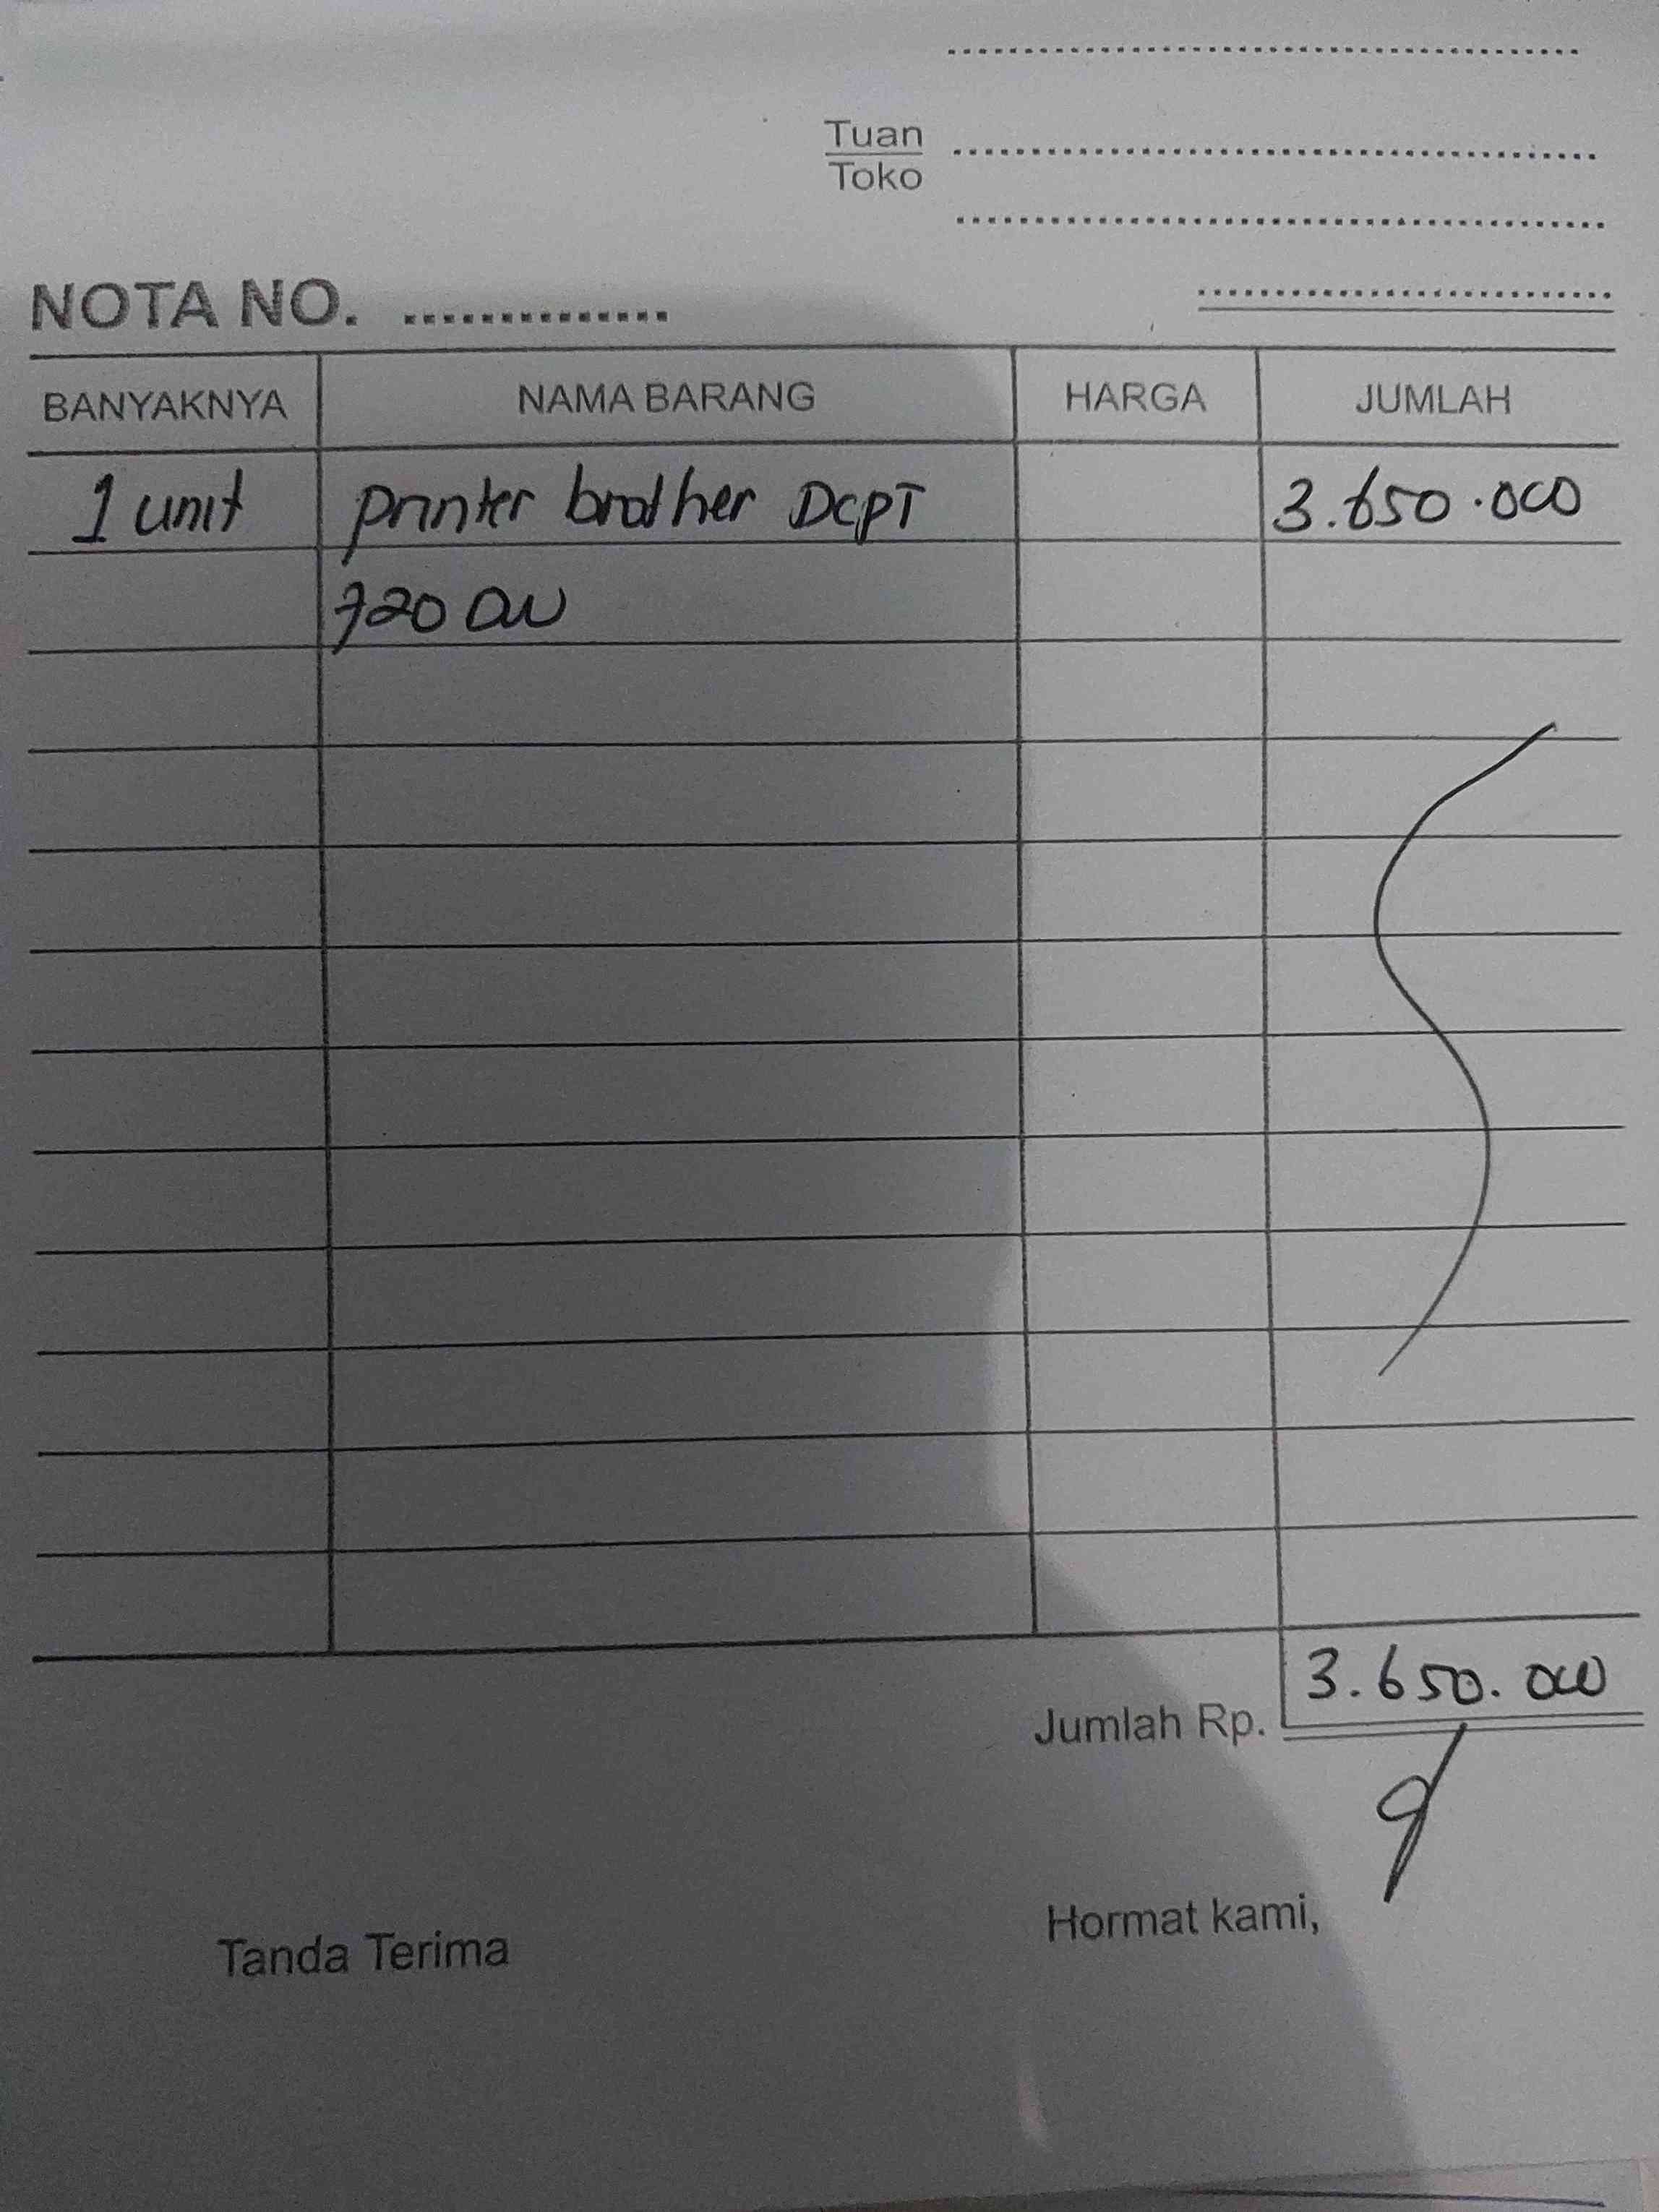 Tuan
Toko
NOTA NO. ...............
BANYAKNYA NAMA BARANG HARGA JUMLAH
1 unit printer brother DCPT 3.650.000
720 DW
3.650.000
Jumlah Rp.
Hormat kami,
Tanda Terima